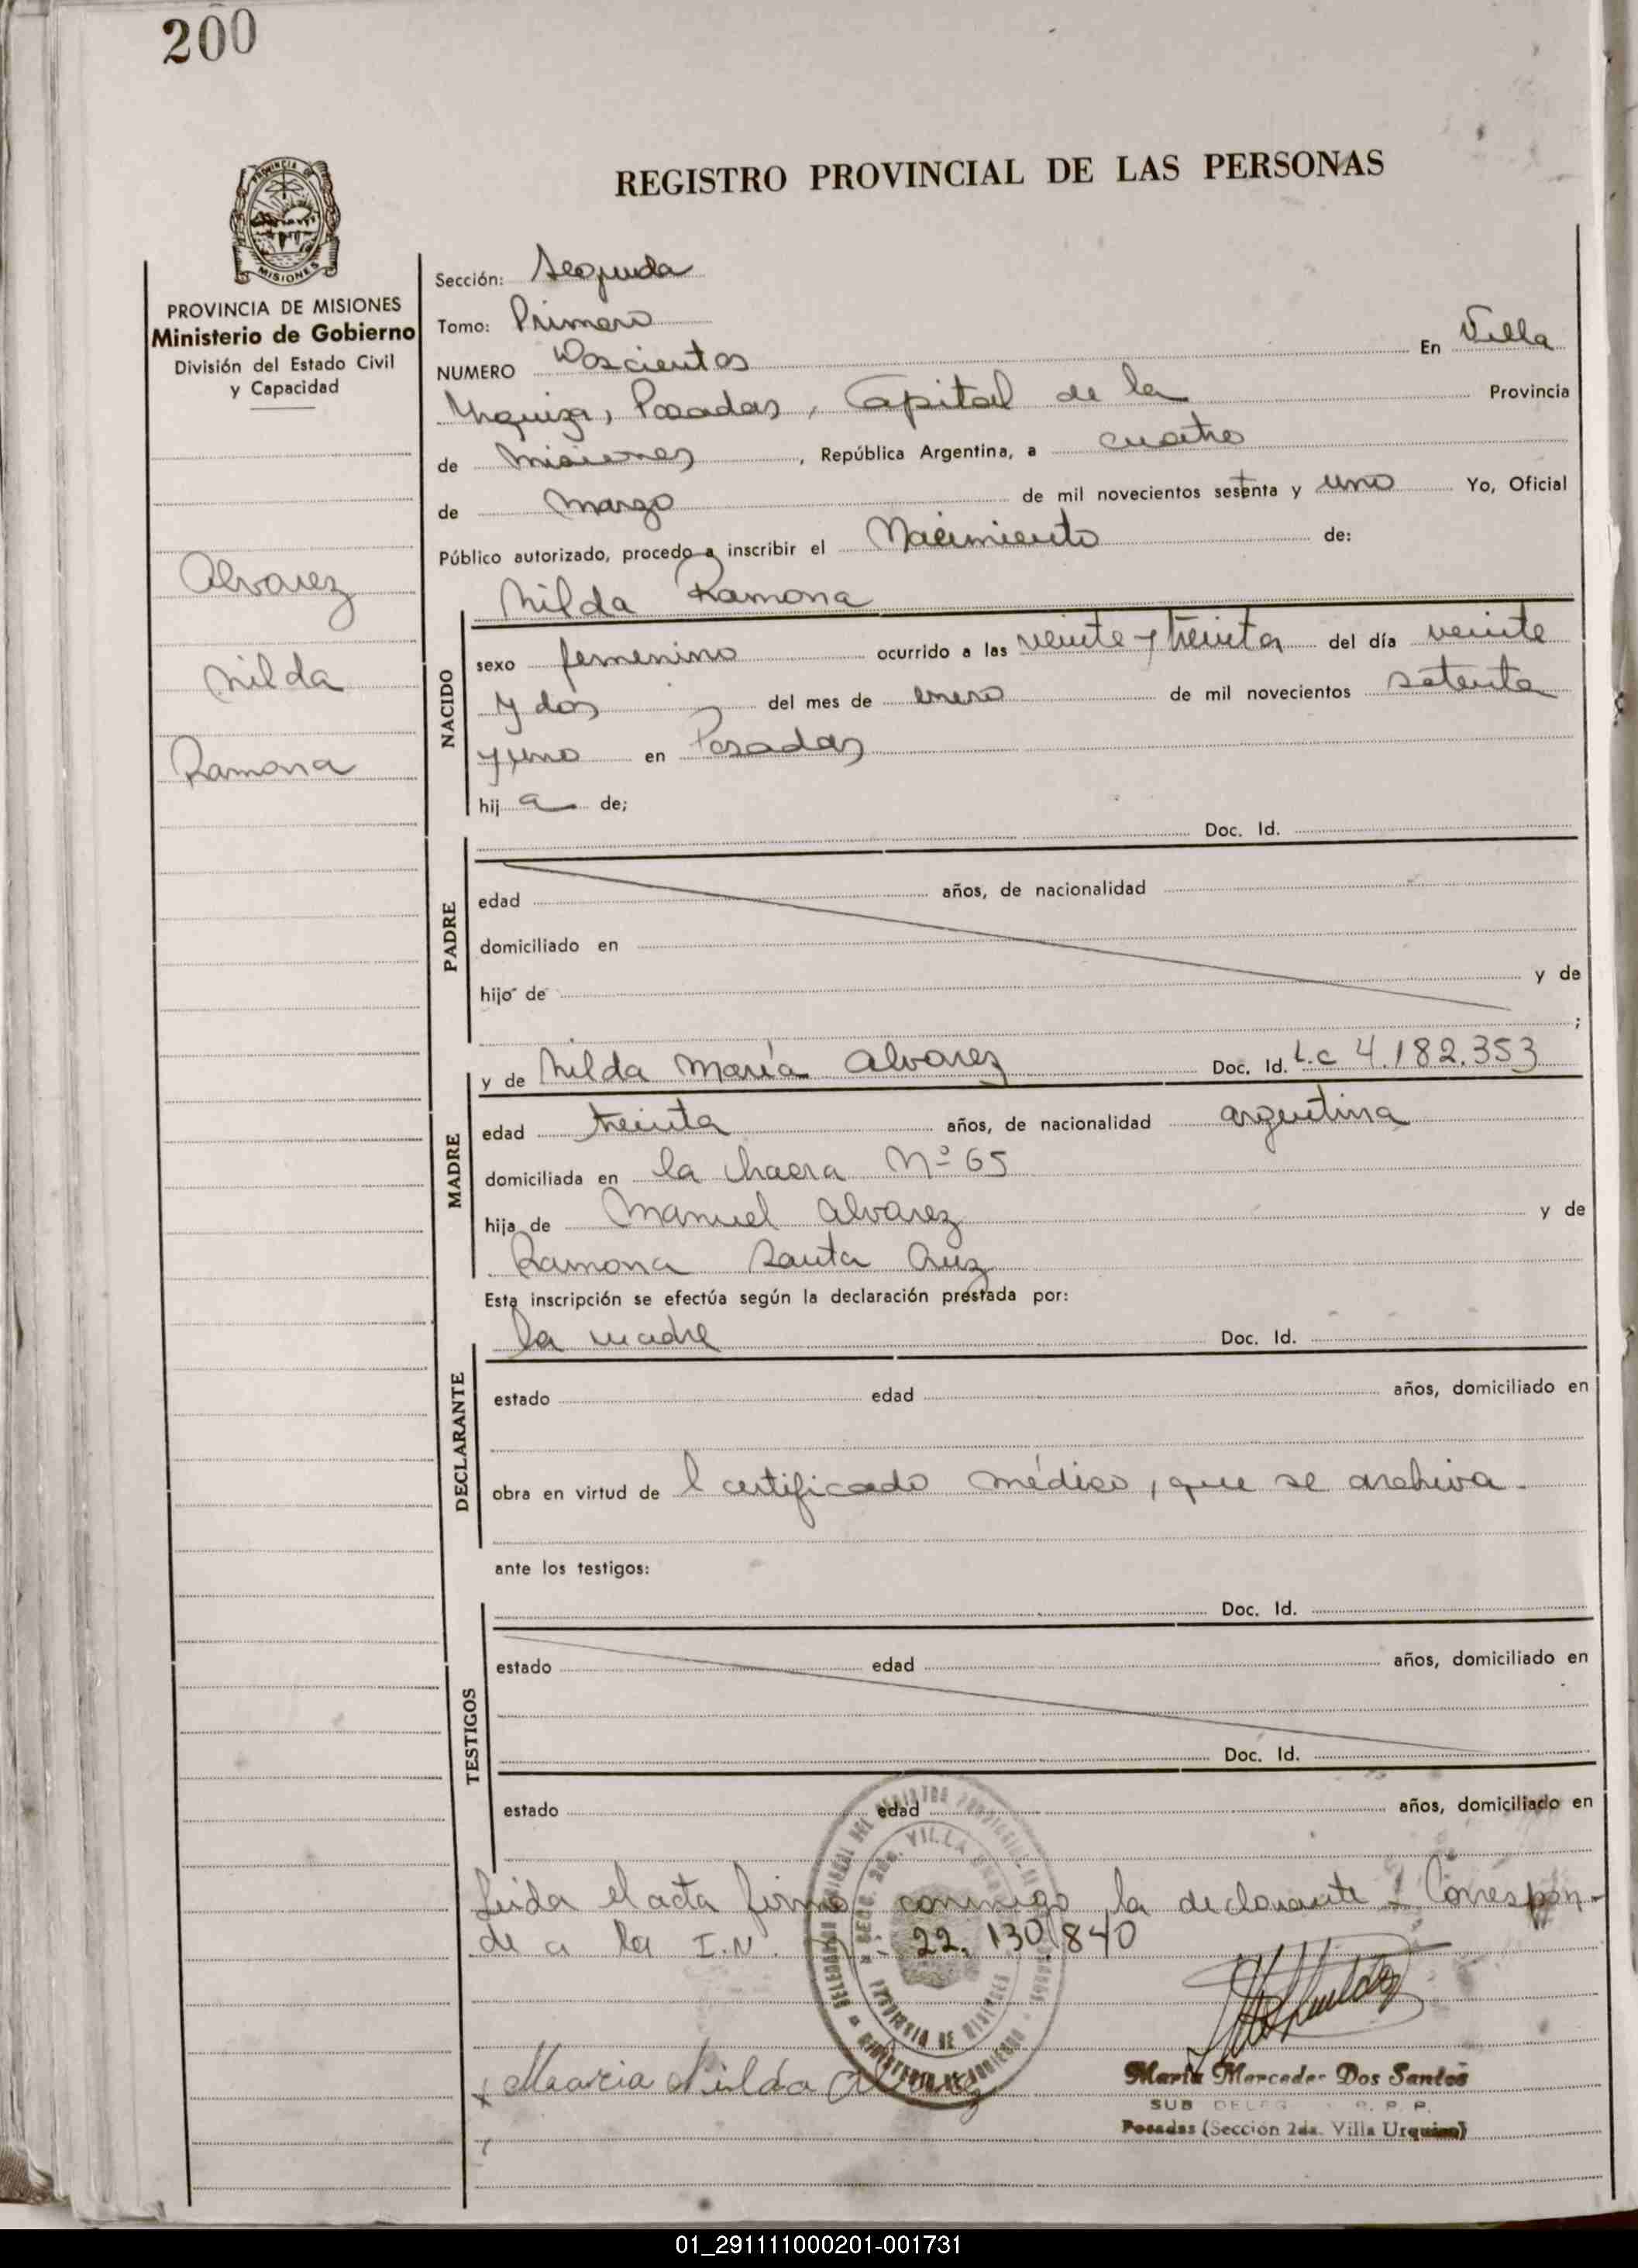 200
PROVINCIA DE
MISIONES
REGISTRO PROVINCIAL DE LAS PERSONAS
PROVINCIA DE MISIONES
Ministerio de Gobierno
División del Estado Civil
y Capacidad
Alvarez
Nilda
Ramona
Sección: Segunda
Tomo: Primero
NUMERO Doscientos En Villa
Urquiza, Posadas, Capital de la Provincia
de Misiones, República Argentina, a cuatro
de marzo de mil novecientos setenta y uno Yo, Oficial
Público autorizado, procedo a inscribir el Nacimiento de:
Nilda Ramona
NACIDO
sexo femenino ocurrido a las veinte y treinta del día veinte
y dos del mes de enero de mil novecientos setenta
y uno en Posadas
hij a de;
Doc. Id.
PADRE
edad años, de nacionalidad
domiciliado en
hijo de y de
;
y de Nilda María Alvarez Doc. Id. L.c 4.182.353
MADRE
edad treinta años, de nacionalidad argentina
domiciliada en la Chacra Nº 65
hija de Manuel Alvarez y de
Ramona Santa Cruz
Esta inscripción se efectúa según la declaración prestada por:
la madre Doc. Id.
DECLARANTE
estado edad años, domiciliado en
obra en virtud de l certificado médico, que se archiva.
ante los testigos:
Doc. Id.
TESTIGOS
estado edad años, domiciliado en
Doc. Id.
estado edad años, domiciliado en
Leída el acta firma conmigo la declarante - Correspon-
de a la I.N. 22.130.840
Maria Nilda Alvarez
María Mercedes Dos Santos
SUB DELEG R. P. P.
Posadas (Sección 2da. Villa Urquiza)
01_291111000201-001731